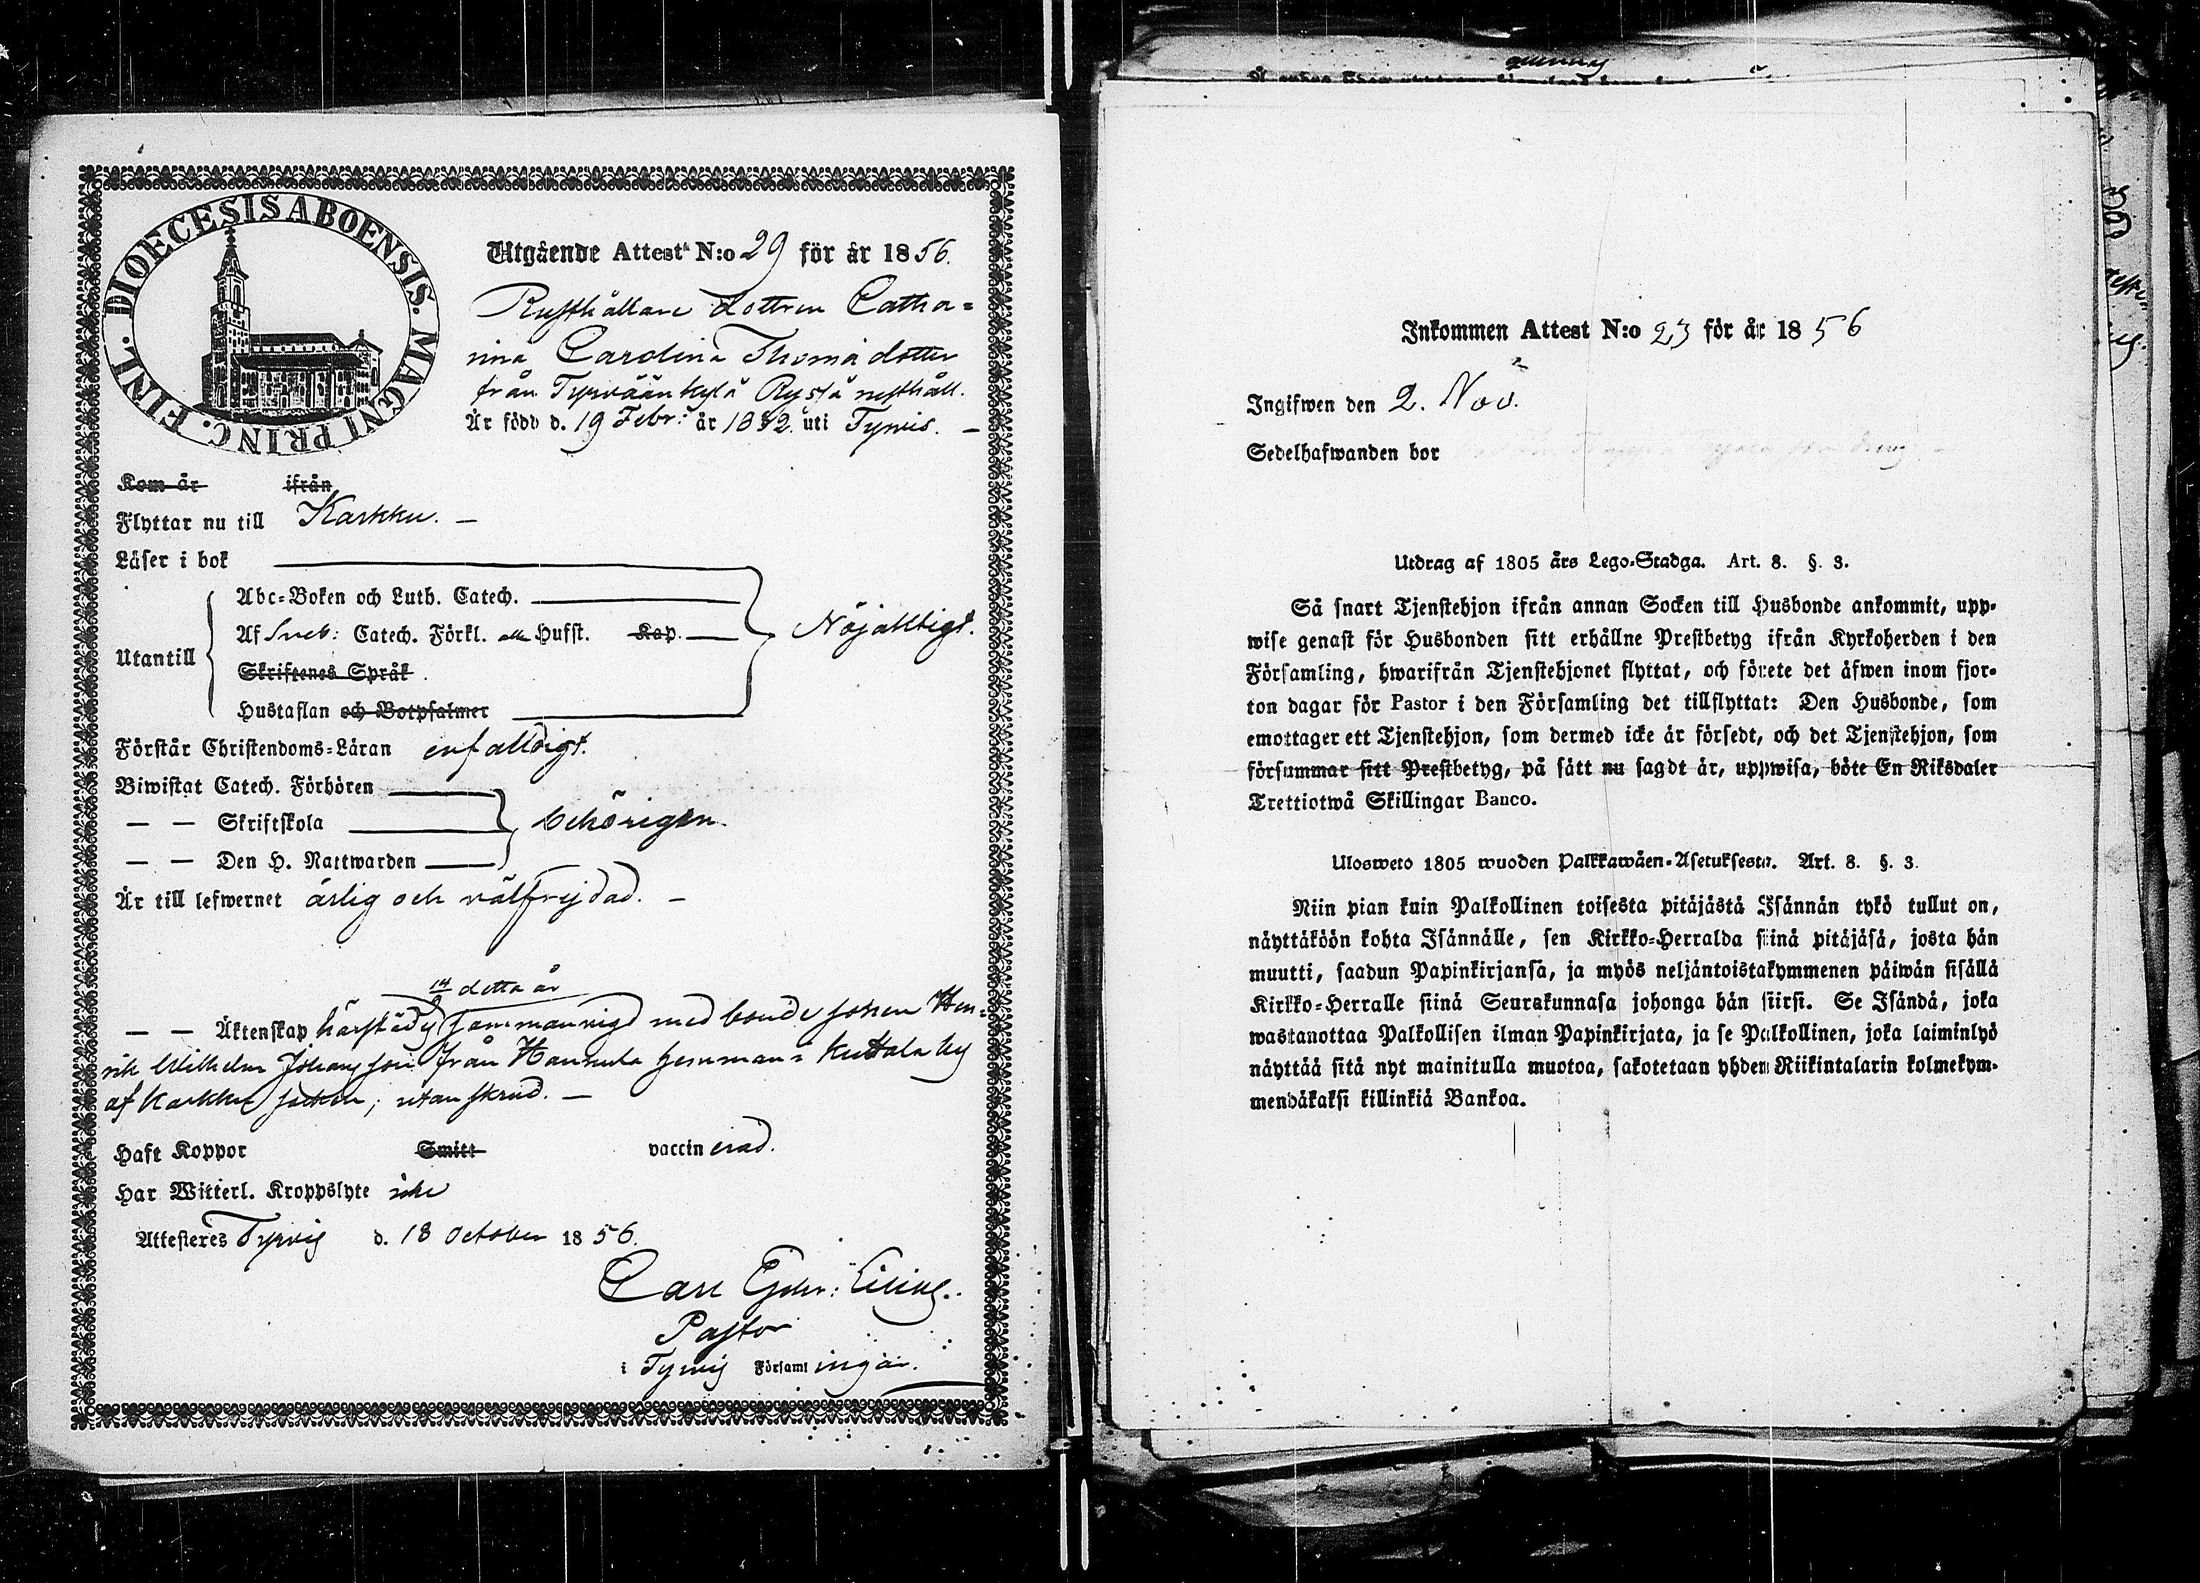 DIOECESIS ABOENSIS. MAGNI PRINC. FINL.
Utgående Attest N:o 29 för år 1856.
Rusthållare dottren Catha=
rina Carolina Thomadotter
från Tyrväänkylä Rystä rusthåll.
Är född d. 19 Febr: år 1832. uti Tyrvis. –
Kom år ifrån
Flyttar nu till Karkku. –
Läser i bok
Utantill
Abc=Boken och Luth. Catech.
Af Sveb: Catech. Förkl. Husst. Kap.
Nöjaktigt.
Skriftenes Språk
Hustaflan och Botpsalmer
Förstår Christendoms=Läran enfaldigt.
Biwistat Catech. Förhören
— — Skriftskola
behörigen.
— — Den H. Nattwarden
Är till lefwernet ärlig och välfrejdad. –
detta år
— — Äktenskap härstädes sammanvigd med bonde sonen Hen=
rik Wilhelm Johansson från Hannula hemman i Kuttala by
af Karkku socken; utan skrud. –
Haft Koppor Smitt vaccinerad.
Har Witterl. Kroppslyte icke
Attesteres Tyrvis d. 18 October 1856.
Carl
Pastor
i Tyrvis Församlingar.
Inkommen Attest N:o 23 för år 1856
Ingifwen den 2. Nov.
Sedelhafwanden bor
Utdrag af 1805 års Lego=Stadga. Art. 8. §. 3.
Så snart Tjenstehjon ifrån annan Socken till Husbonde ankommit, upp=
wise genast för Husbonden sitt erhållne Prestbetyg ifrån Kyrkoherden i den
Församling, hwarifrån Tjenstehjonet flyttat, och förete det äfwen inom fjor=
ton dagar för Pastor i den Församling det tillflyttat: Den Husbonde, som
emottager ett Tjenstehjon, som dermed icke är försedt, och det Tjenstehjon, som
försummar sitt Prestbetyg, på sätt nu sagdt är, uppwisa, böte En Riksdaler
Trettiotwå Skillingar Banco.
Ulosweto 1805 wuoden Palkkawäen=Asetuksesta. Art. 8. §. 3.
Niin pian kuin Palkollinen toisesta pitäjästä Isännän tykö tullut on,
näyttäköön kohta Isännälle, sen Kirkko=Herralda siinä pitäjäsä, josta hän
muutti, saadun Papinkirjansa, ja myös neljäntoistakymmenen päiwän sisällä
Kirkko=Herralle siinä Seurakunnasa johonga hän siirsi. Se Isändä, joka
wastanottaa Palkollisen ilman Papinkirjata, ja se Palkollinen, joka laiminlyö
näyttää sitä nyt mainitulla muotoa, sakotetaan yhden Riikintalarin kolmekym=
mendäkaksi killinkiä Bankoa.